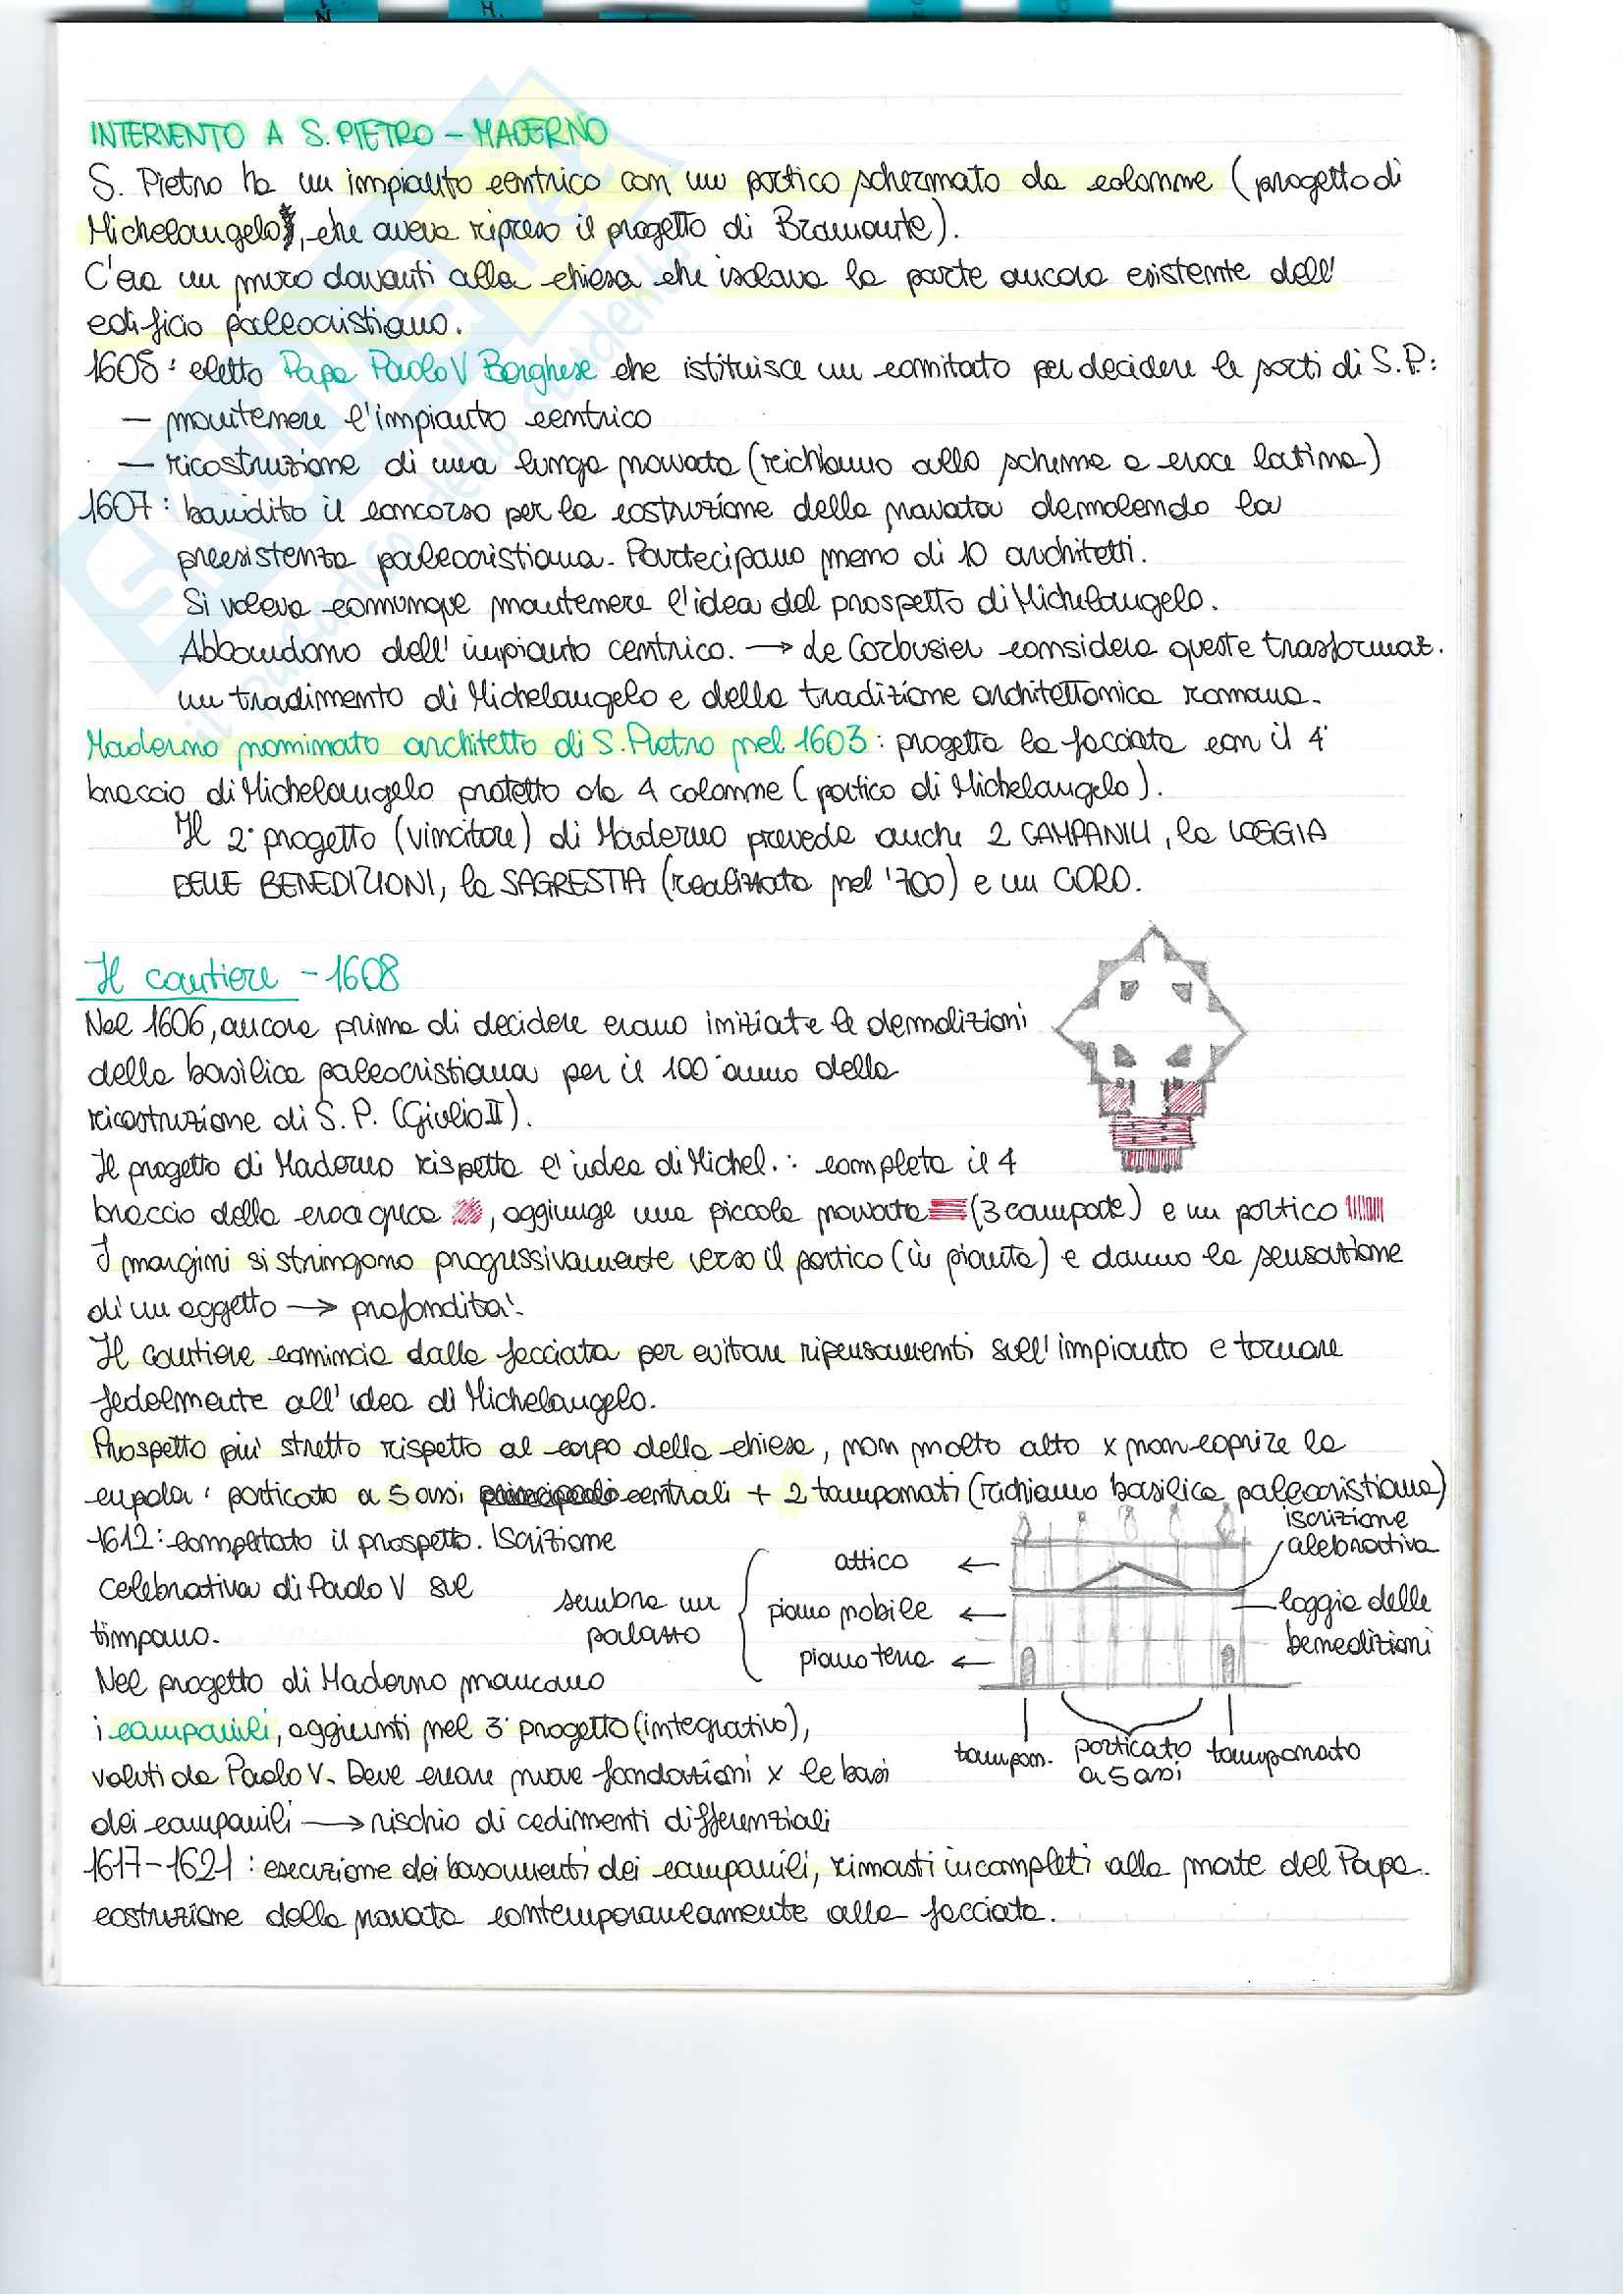 INTERVENTO A S. PIETRO – MADERNO
S. Pietro ha un impianto centrico con un portico schermato da colonne (progetto di
Michelangelo, che aveva ripreso il progetto di Bramante).
C'era un muro davanti alla chiesa che isolava la parte ancora esistente dell'
edificio paleocristiano.
1605: eletto Papa Paolo V Borghese che istituisce un comitato per decidere le sorti di S.P.:
– mantenere l'impianto centrico
– ricostruzione di una lunga navata (richiamo allo schema a croce latina)
1607: bandito il concorso per la costruzione della navata demolendo la
preesistenza paleocristiana. Partecipano meno di 10 architetti.
Si voleva comunque mantenere l'idea del prospetto di Michelangelo.
Abbandono dell'impianto centrico. → Le Corbusier considera queste trasformaz.
un tradimento di Michelangelo e della tradizione architettonica romana.
Maderno nominato architetto di S. Pietro nel 1603: progetta la facciata con il 4°
braccio di Michelangelo protetto da 4 colonne (portico di Michelangelo).
Il 2° progetto (vincitore) di Maderno prevede anche 2 CAMPANILI, la LOGGIA
DELLE BENEDIZIONI, la SAGRESTIA (realizzata nel '700) e un CORO.
Il cantiere – 1608
Nel 1606, ancora prima di decidere erano iniziate le demolizioni
della basilica paleocristiana per il 100° anno della
ricostruzione di S. P. (Giulio II).
Il progetto di Maderno rispetta l'idea di Michel.: completa il 4
braccio della croce greca, aggiunge una piccola navata (3 campate) e un portico
I margini si stringono progressivamente verso il portico (in pianta) e danno la sensazione
di un oggetto → profondità.
Il cantiere comincia dalla facciata per evitare ripensamenti sull'impianto e tornare
fedelmente all'idea di Michelangelo.
Prospetto più stretto rispetto al corpo della chiesa, non molto alto x non coprire la
cupola: porticato a 5 assi centrali + 2 tamponati (richiamo basilica paleocristiana)
1612: completato il prospetto. Iscrizione
celebrativa di Paolo V sul
timpano.
sembra un
palazzo
attico
piano nobile
piano terra
iscrizione
celebrativa
loggia delle
benedizioni
tampon.
porticato
a 5 assi
tamponato
Nel progetto di Maderno mancano
i campanili, aggiunti nel 3° progetto (integrativo),
voluti da Paolo V. Deve creare nuove fondazioni x le basi
dei campanili → rischio di cedimenti differenziali
1617–1621: esecuzione dei basamenti dei campanili, rimasti incompleti alla morte del Papa.
costruzione della navata contemporaneamente alla facciata.